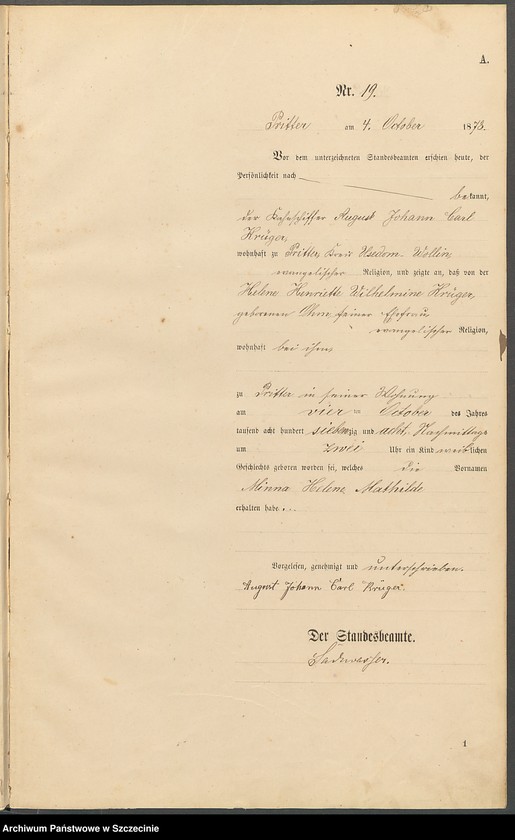 A.
Nr. 19.
Pritter am 4. October 1878.
Vor dem unterzeichneten Standesbeamten erschien heute, der
Persönlichkeit nach
bekannt,
der Kahnschiffer August Johann Carl
Krüger,
wohnhaft zu Pritter, Kreis Usedom-Wollin
evangelischer Religion, und zeigte an, daß von der
Helene Henriette Wilhelmine Krüger,
geborenen seiner Ehefrau
evangelischer Religion,
wohnhaft bei ihm
zu Pritter in seiner Wohnung
am vier ten October des Jahres
tausend acht hundert siebenzig und acht Nachmittags
um zwei Uhr ein Kind weiblichen
Geschlechts geboren worden sei, welches die Vornamen
Minna Helene Mathilde
erhalten habe. . .
Vorgelesen, genehmigt und unterschrieben.
August Johann Carl Krüger.
Der Standesbeamte.
1
Archiwum Państwowe w Szczecinie